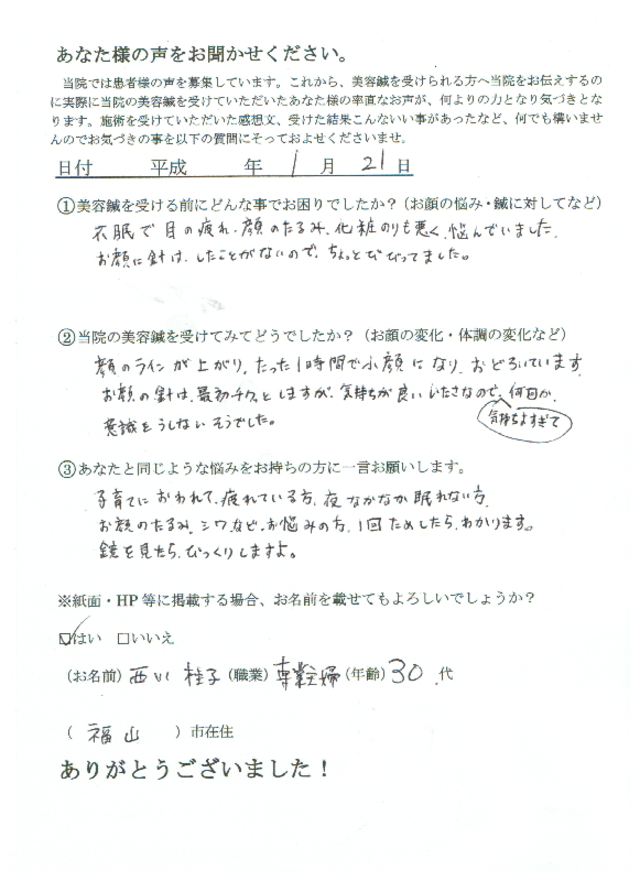 あなた様の声をお聞かせください。
当院では患者様の声を募集しています。これから、美容鍼を受けられる方へ当院をお伝えするの
に実際に当院の美容鍼を受けていただいたあなた様の率直なお声が、何よりの力となり気づきとな
ります。施術を受けていただいた感想文、受けた結果こんないい事があったなど、何でも構いませ
んのでお気づきの事を以下の質問にそっておよせくださいませ。
日付 平成 年 1 月 21 日
①美容鍼を受ける前にどんな事でお困りでしたか？（お顔の悩み・鍼に対してなど）
不眠で目の疲れ、顔のたるみ、化粧のりも悪く、悩んでいました。
お顔に針は、したことがないので、ちょっとびびってました。
②当院の美容鍼を受けてみてどうでしたか？（お顔の変化・体調の変化など）
顔のラインが上がり、たった1時間で小顔になり、おどろいています。
お顔の針は、最初チクッとしますが、気持ちが良いいたさなので、何回か、
気持ちよすぎて
意識をうしないそうでした。
③あなたと同じような悩みをお持ちの方に一言お願いします。
子育てにおわれて、疲れている方、夜なかなか眠れない方、
お顔のたるみ、シワなど、お悩みの方、1回ためしたら、わかります。
鏡を見たら、びっくりしますよ。
※紙面・HP等に掲載する場合、お名前を載せてもよろしいでしょうか？
☑はい □いいえ
（お名前）西川 桂子（職業）専業主婦（年齢）30代
（ 福山 ）市在住
ありがとうございました！